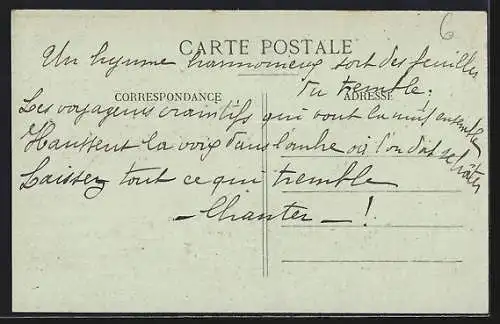 6
CARTE POSTALE
Un hymne harmonieux sort des feuilles
du tremble:
CORRESPONDANCE
ADRESSE
Les voyageurs craintifs qui vont la nuit ensemble
Haussent la voix dans l'ombre où l'on doit se hâter
Laissez tout ce qui tremble
— Chanter — !